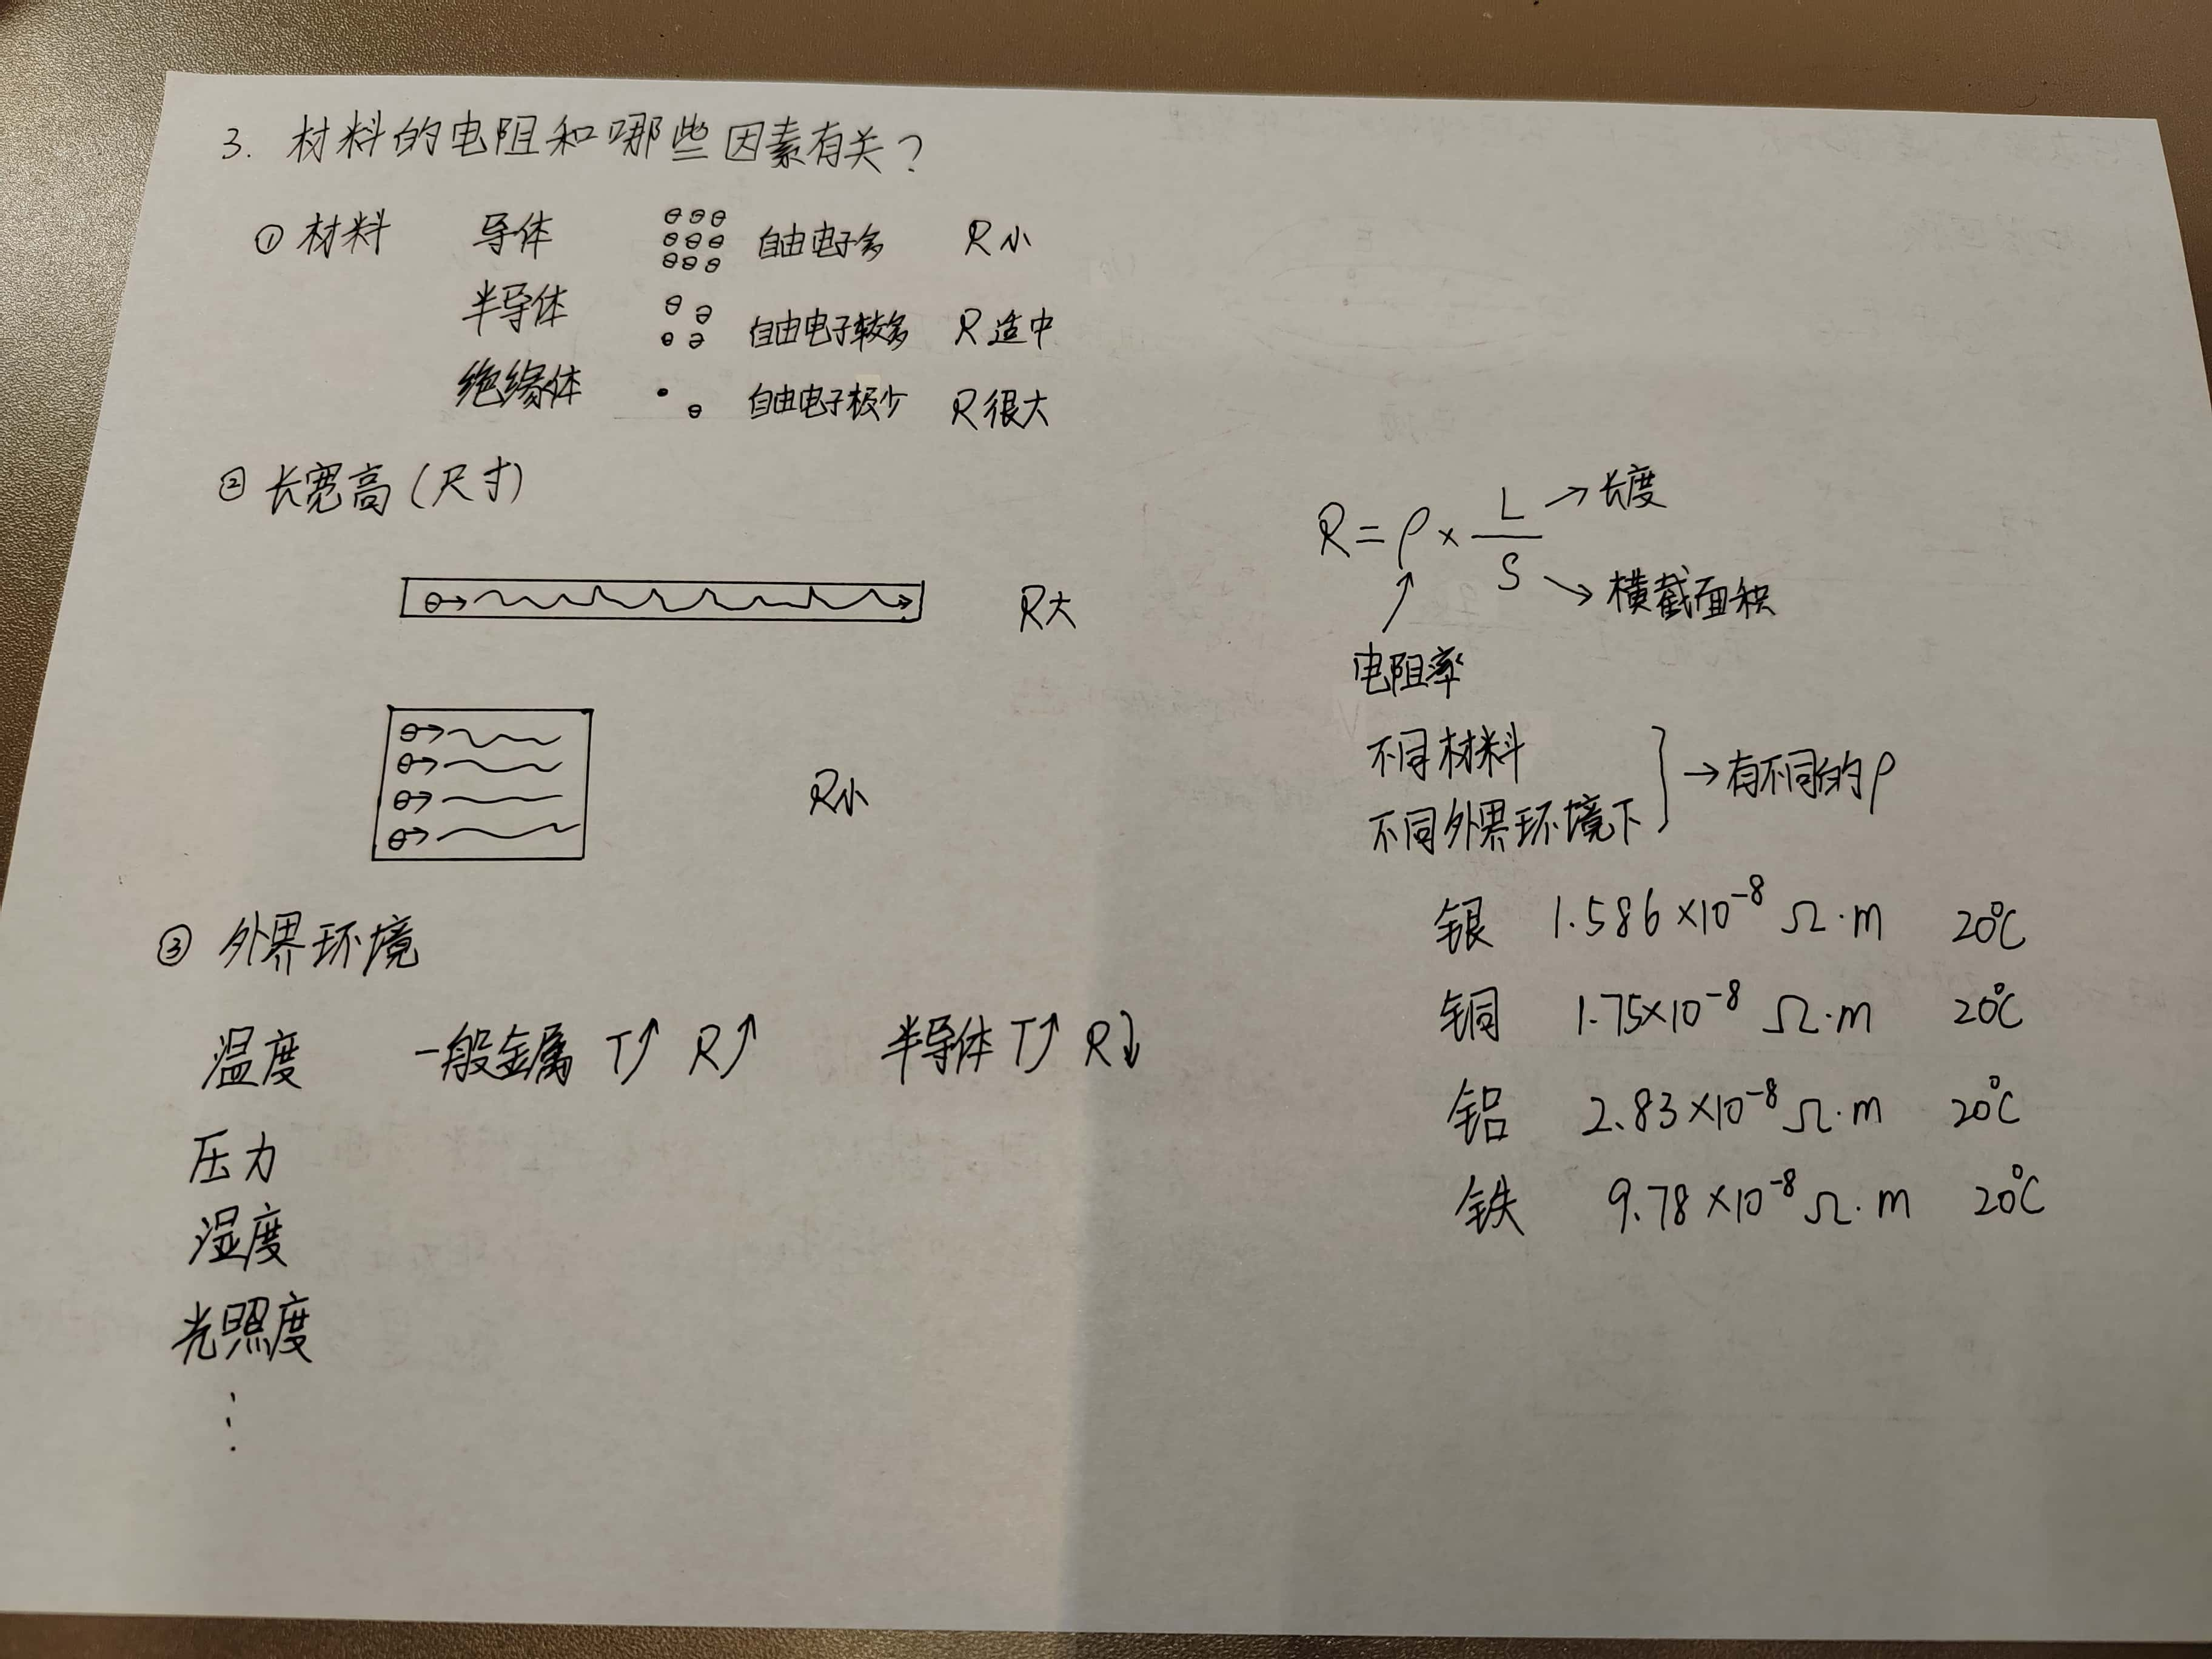 3. 材料的电阻和哪些因素有关?
① 材料 导体 自由电子多 R小
半导体 自由电子较多 R适中
绝缘体 自由电子极少 R很大
② 长宽高(尺寸)
R大
R小
R=ρ× L/S →长度
→横截面积
电阻率
不同材料
不同外界环境下
→有不同的ρ
银 1.586×10⁻⁸ Ω·m 20℃
铜 1.75×10⁻⁸ Ω·m 20℃
铝 2.83×10⁻⁸ Ω·m 20℃
铁 9.78×10⁻⁸ Ω·m 20℃
③ 外界环境
温度 一般金属 T↑ R↑ 半导体 T↑ R↓
压力
湿度
光照度
⋮